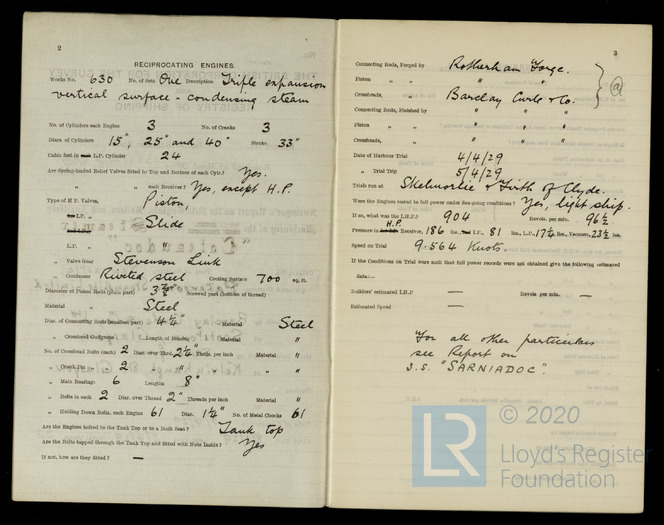 2
RECIPROCATING ENGINES.
Works No. 630 No. of Sets One Description Triple expansion
vertical surface - condensing steam
No. of Cylinders each Engine 3 No. of Cranks 3
Diars. of Cylinders 15", 25" and 40" Stroke 33"
Cubic feet in each L.P. Cylinder 24
Are Spring-loaded Relief Valves fitted to Top and Bottom of each Cylr.? Yes.
" " each Receiver? Yes, except H.P.
Type of H.P. Valves, Piston
I.P. " Slide
L.P. "
" Valve Gear Stevenson Link
" Condenser Riveted steel Cooling Surface 700 sq. ft.
Diameter of Piston Rods (plain part) 3 7/8" Screwed part (bottom of thread)
Material Steel
Diar. of Connecting Rods (smallest part) 4 1/4" Material Steel
" Crosshead Gudgeons Length of Bearing Material "
No. of Crosshead Bolts (each) 2 Diar. over Thrd. 2 1/4" Thrds. per inch Material "
" Crank Pin " " 2 " " " "
" Main Bearings 6 Lengths 8"
" Bolts in each 2 Diar. over Thread 2" Threads per inch Material "
" Holding Down Bolts, each Engine 61 Diar. 1 1/4" No. of Metal Chocks 61
Are the Engines bolted to the Tank Top or to a Built Seat? Tank top
Are the Bolts tapped through the Tank Top and fitted with Nuts Inside? Yes
If not, how are they fitted? —
3
Connecting Rods, Forged by Rotherham Forge.
Piston " " "
Crossheads, " Barclay Curle & Co.
Connecting Rods, Finished by " "
Piston " " " "
Crossheads, " " "
Date of Harbour Trial 4/4/29
" Trial Trip 5/4/29
Trials run at Skelmorlie & Firth of Clyde.
Were the Engines tested to full power under Sea-going conditions? Yes, light ship.
If so, what was the I.H.P.? 904 Revols. per min. 96 1/2
Pressure in H.P. Receiver, 186 lbs., I.P. 81 lbs., L.P. 17 1/4 lbs., Vacuum, 23 1/2 ins.
Speed on Trial 9.564 Knots.
If the Conditions on Trial were such that full power records were not obtained give the following estimated
data:—
Builders' estimated I.H.P. — Revols. per min. —
Estimated Speed —
For all other particulars
see Report on
S.S. "SARNIADOC".
© 2020
LR
Lloyd's Register
Foundation